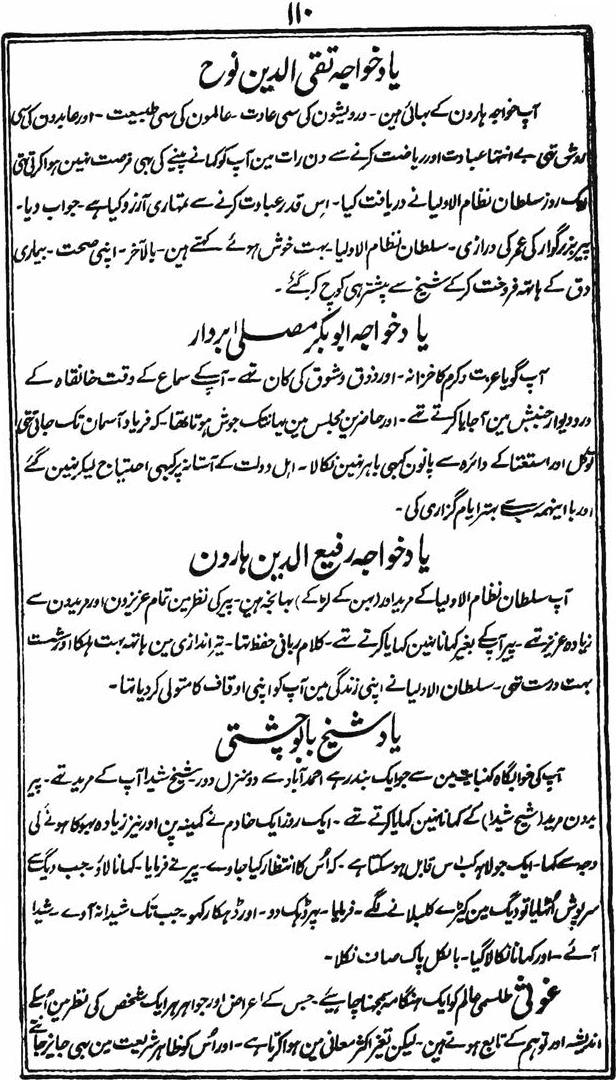 ۱۱۰
یاد خواجہ تقی الدین نوح
آپ خواجہ ہارون کے بہائی ہین - درویشون کی سی عادت - عالمون کی سی طبیعت - اور عابدون کی سی
روش تہی بے انتہا عبادت اور ریاضت کرنے سے دن رات مین آپ کو کہانے پینے کی بہی فرصت نہین ہوا کرتی تہی
ایک روز سلطان نظام الاولیا نے دریافت کیا - اس قدر عبادت کرنے سے تمہاری آرزو کیا ہے - جواب دیا -
پیر بزرگوار کی عمر کی درازی - سلطان نظام الاولیا - بہت خوش ہوئے کہتے ہین - بالآخر - اپنی صحت - بیماری
دق کے ہاتہہ فروخت کر کے شیخ سے پیشتر ہی کوچ کر گئے -
یاد خواجہ ابوبکر مصلیٰ بردار
آپ گویا عزت و کرم کا خزانہ - اور ذوق و شوق کی کان تہے - آپ کے سماع کے وقت خانقاہ کے
در و دیوار جنبش مین آجایا کرتے تہے - اور حاضرین مجلس مین یہانتک جوش ہوتا تہا - کہ فریاد آسمان تک جاتی تہی
توکل اور استغنا کے دائرہ سے پانون کبہی باہر نہین نکالا - اہل دولت کے آستانہ پر کبہی احتیاج لیکر نہین گئے
اور با اینہمہ سب سے بہتر ایام گزاری کی -
یاد خواجہ رفیع الدین ہارون
آپ سلطان نظام الاولیا کے مرید اور (بہن کے لڑکے) بہانجہ ہین - پیر کی نظر مین تمام عزیزون اور مریدون سے
زیادہ عزیز تہے - پیر آپ کے بغیر کہانا نہین کہایا کرتے تہے - کلام ربانی حفظ تہا - تیر اندازی مین ہاتہہ بہت ہلکا اور شست
بہت درست تہی - سلطان الاولیا نے اپنی زندگی مین آپ کو اپنی اوقاف کا متولی کر دیا تہا -
یاد شیخ بابو چشتی
آپ کی خوابگاہ کنبایت مین سے جو ایک بندر ہے احمد آباد سے دو منزل دور - شیخ شیدا آپ کے مرید تہے - پیر
بدون مرید (شیخ شیدا) کے کہانا نہین کہایا کرتے تہے - ایک روز ایک خادم نے کمینہ پن اور نیز زیادہ بہوکا ہونے کی
وجہ سے کہا - ایک جولاہہ کب اس قابل ہو سکتا ہے - کہ اُس کا انتظار کیا جاوے - پیر نے فرمایا - کہانا لاؤ - جب دیگ سے
سرپوش اُٹہایا تو دیگ مین کیڑے کلبلانے لگے - فرمایا - پہر ڈہک دو - اور ڈہکا رکہو - جب تک شیدا نہ آوے - شیدا
آئے - اور کہانا نکالا گیا - بالکل پاک صاف نکلا -
غوثی طلسمی عالم کو ایک ہنگامہ سمجہنا چاہیے جس کے اعراض اور جواہر ہر ایک شخص کی نظر مین اُسکے
اندیشہ اور توہم کے تابع ہوتے ہین - لیکن تغیر اکثر معانی مین ہوا کرتا ہے - اور اُس کو ظاہر شریعت مین بہی جایز جانتے